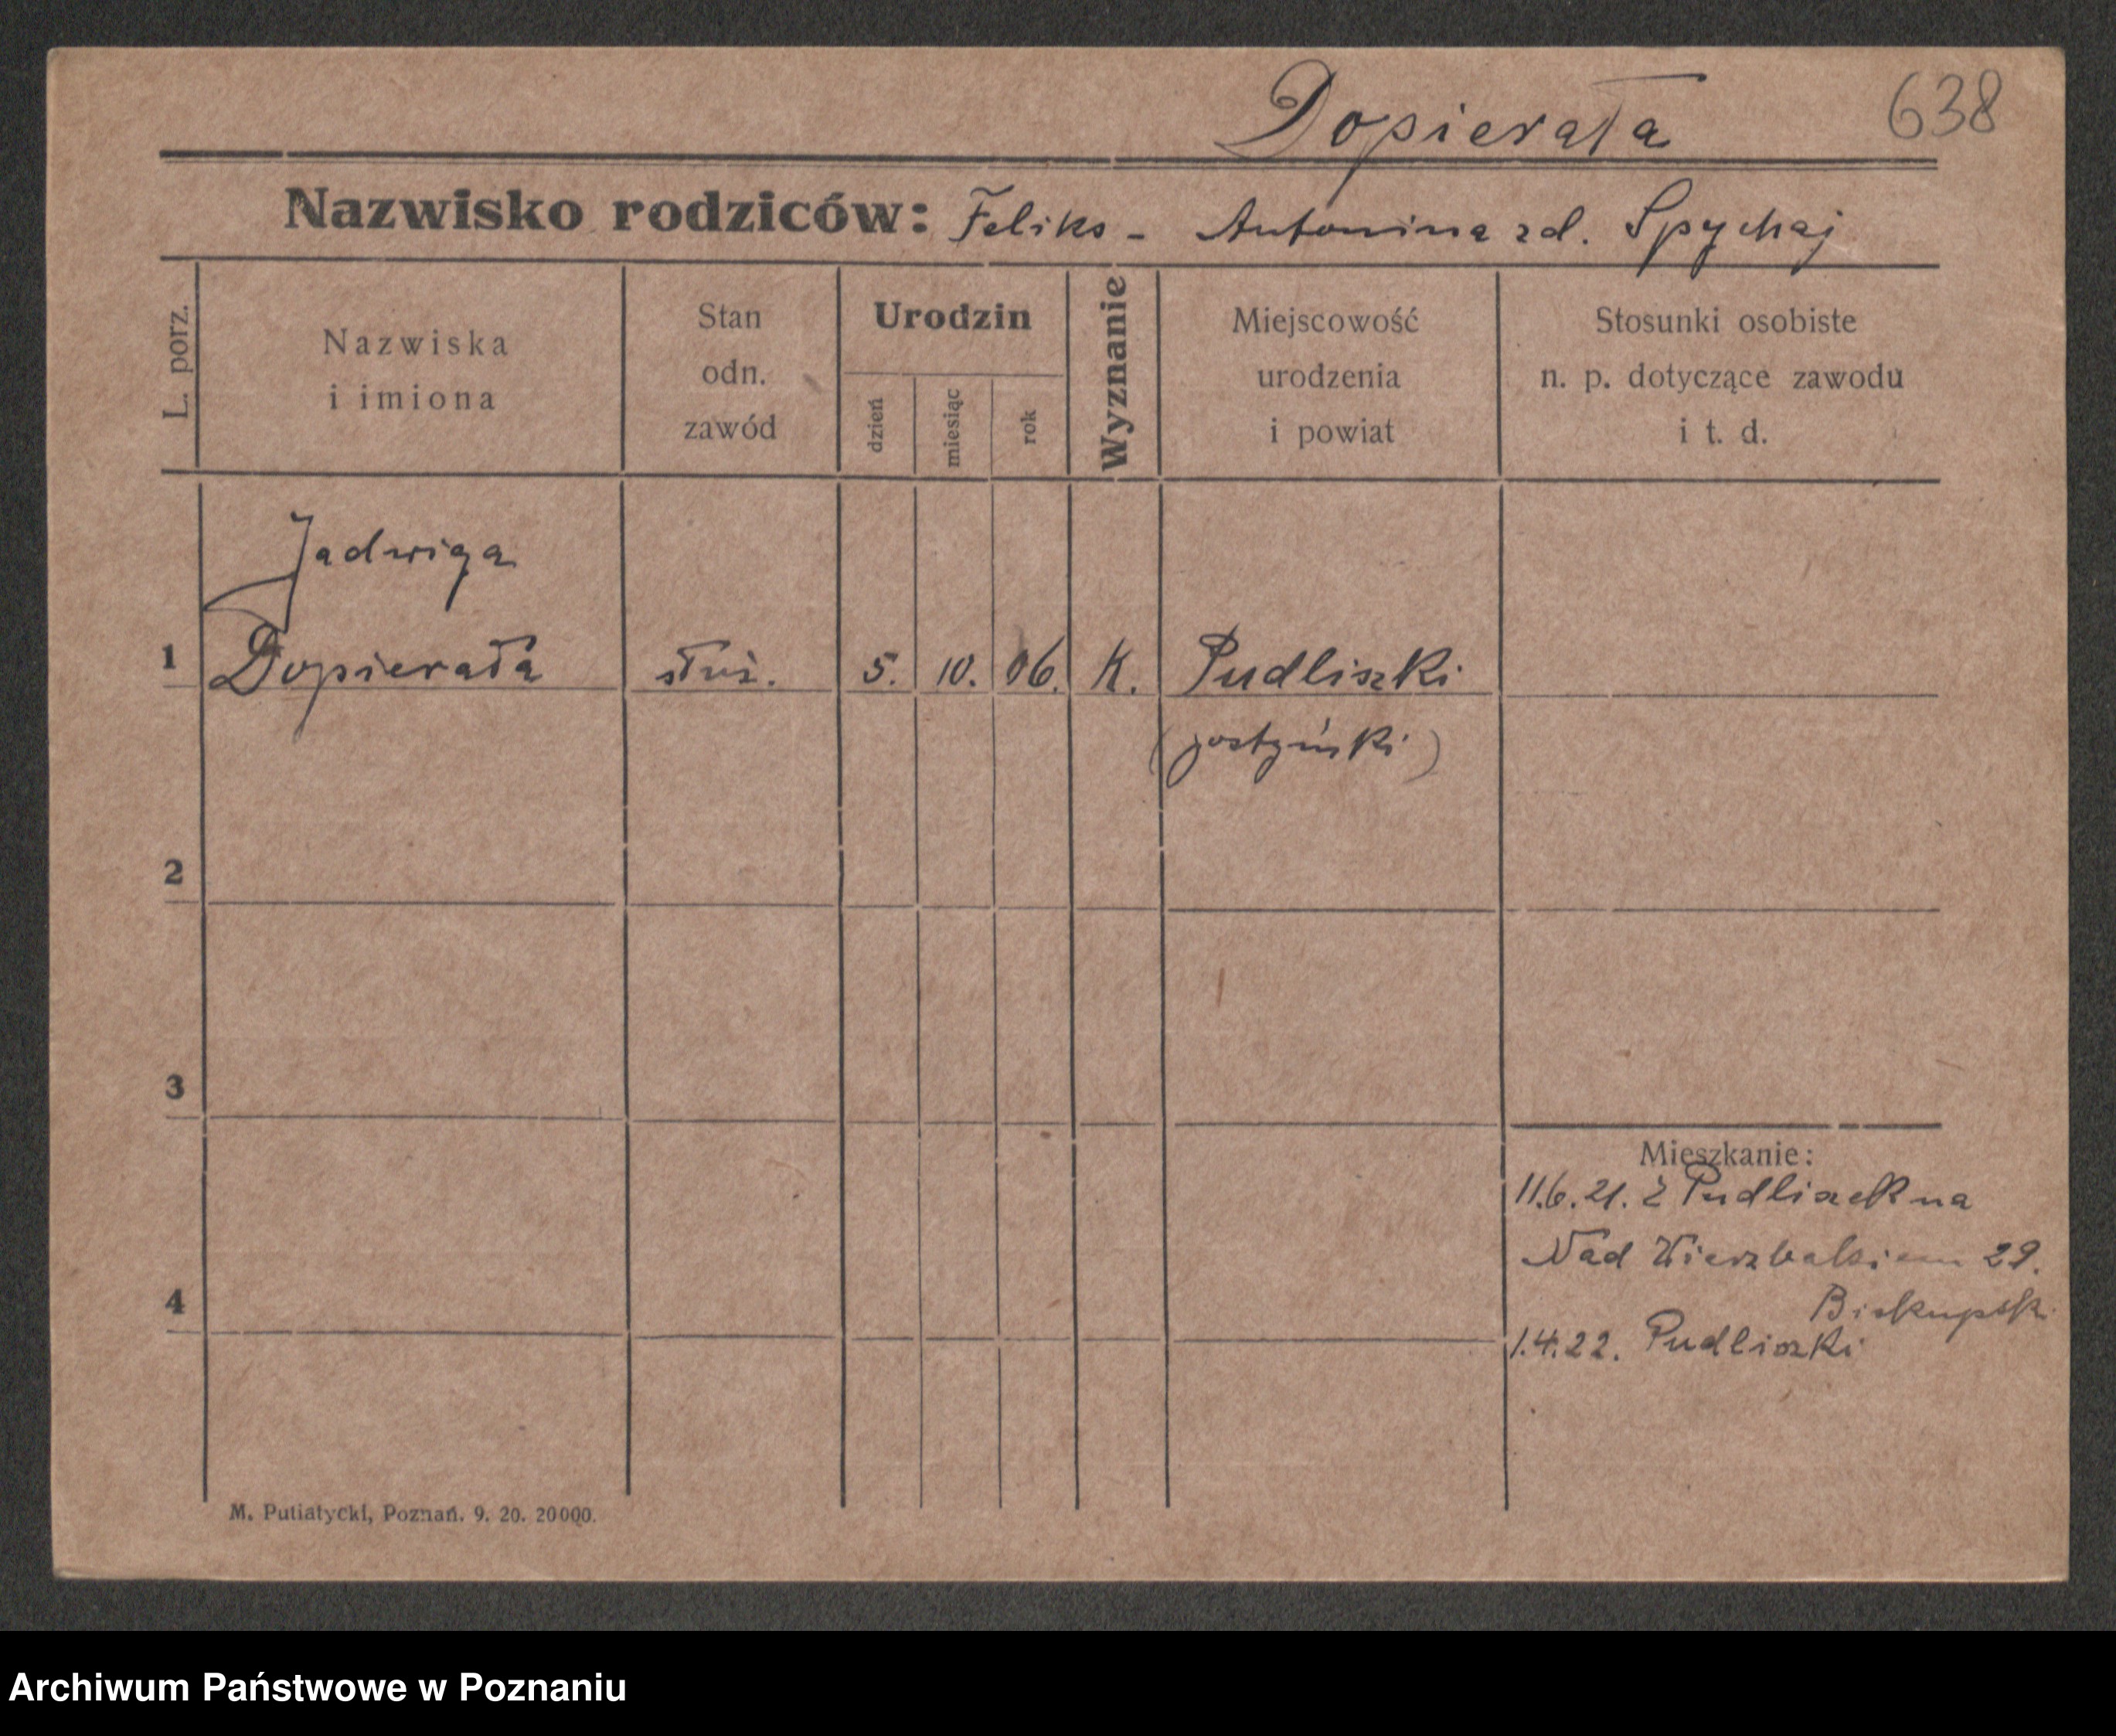 Dopierała
638
Nazwisko rodziców: Feliks - Antonina zd. Spychaj
L. porz.
Nazwiska
i imiona
Stan
odn.
zawód
Urodzin
dzień
miesiąc
rok
Wyznanie
Miejscowość
urodzenia
i powiat
Stosunki osobiste
n. p. dotyczące zawodu
i t. d.
Jadwiga
1 Dopierała służ. 5. 10. 06. K. Pudliszki
(gostyński)
2
3
Mieszkanie:
11.6.21. z Pudliszek na
Nad Wierzbakiem 29.
4
Biskupski
1.4.22. Pudliszki
M. Putiatycki, Poznań. 9. 20. 20000.
Archiwum Państwowe w Poznaniu